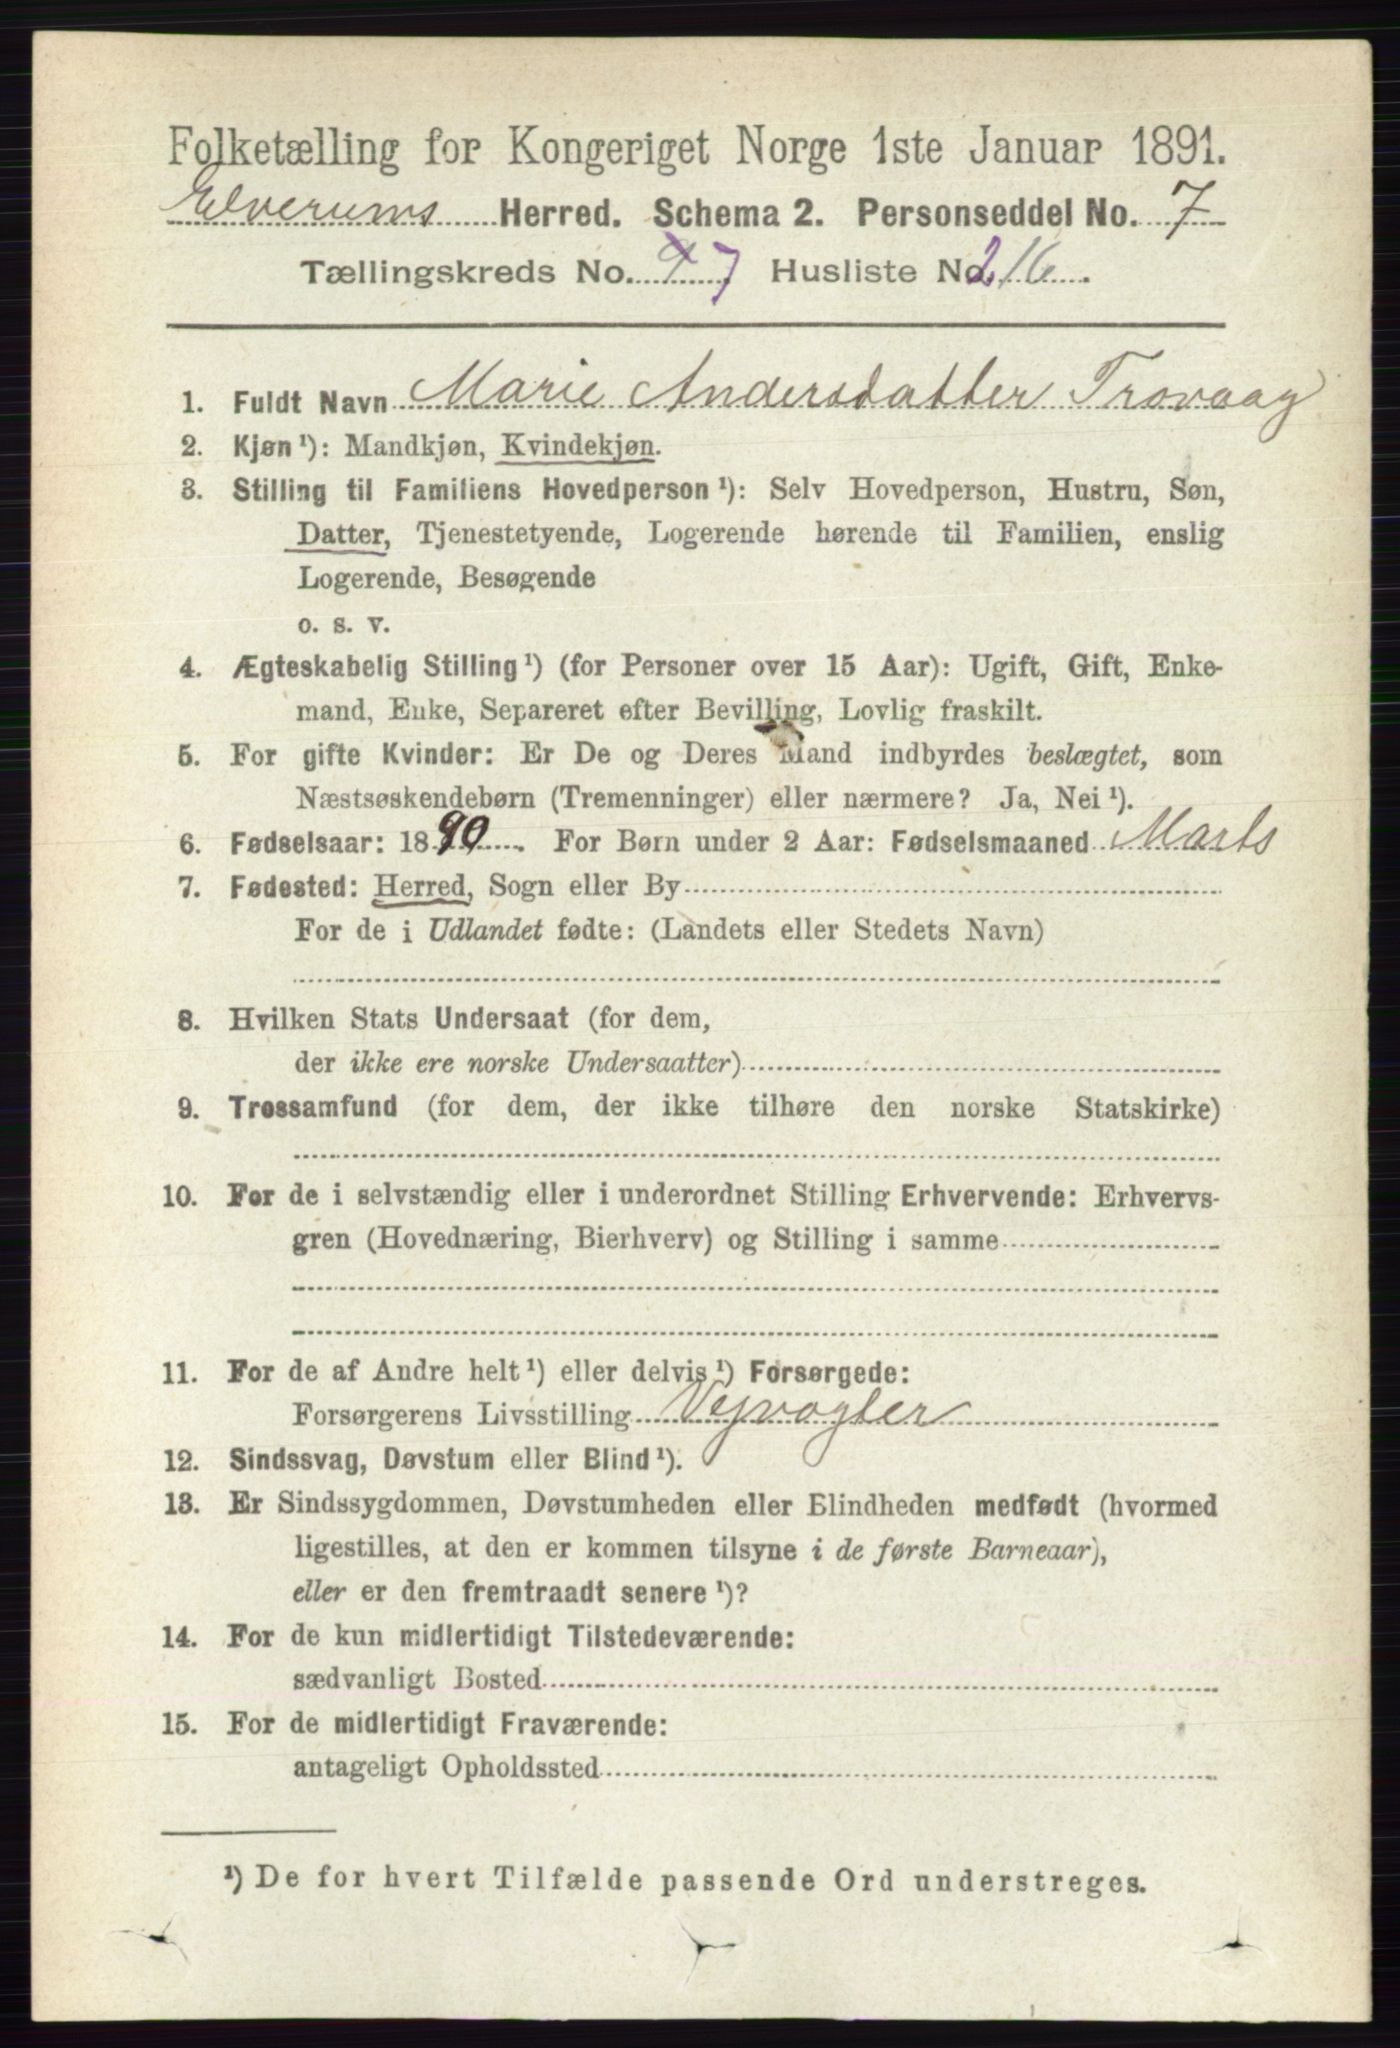 Folketælling for Kongeriget Norge 1ste Januar 1891.
Elverums Herred. Schema 2. Personseddel No. 7
Tællingskreds No. 7 Husliste No. 216.
1. Fuldt Navn Marie Andersdatter Trovaag
2. Kjøn¹): Mandkjøn, Kvindekjøn.
3. Stilling til Familiens Hovedperson¹): Selv Hovedperson, Hustru, Søn,
Datter, Tjenestetyende, Logerende hørende til Familien, enslig
Logerende, Besøgende
o. s. v.
4. Ægteskabelig Stilling¹) (for Personer over 15 Aar): Ugift, Gift, Enke-
mand, Enke, Separeret efter Bevilling, Lovlig fraskilt.
5. For gifte Kvinder: Er De og Deres Mand indbyrdes beslægtet, som
Næstsøskendebørn (Tremenninger) eller nærmere? Ja, Nei¹).
6. Fødselsaar: 1890. For Børn under 2 Aar: Fødselsmaaned Marts
7. Fødested: Herred, Sogn eller By
For de i Udlandet fødte: (Landets eller Stedets Navn)
8. Hvilken Stats Undersaat (for dem,
der ikke ere norske Undersaatter)
9. Trossamfund (for dem, der ikke tilhøre den norske Statskirke)
10. For de i selvstændig eller i underordnet Stilling Erhvervende: Erhvervs-
gren (Hovednæring, Bierhverv) og Stilling i samme
11. For de af Andre helt¹) eller delvis¹) Forsørgede:
Forsørgerens Livsstilling Vejvogter
12. Sindssvag, Døvstum eller Blind¹).
13. Er Sindssygdommen, Døvstumheden eller Blindheden medfødt (hvormed
ligestilles, at den er kommen tilsyne i de første Barneaar),
eller er den fremtraadt senere¹)?
14. For de kun midlertidigt Tilstedeværende:
sædvanligt Bosted
15. For de midlertidigt Fraværende:
antageligt Opholdssted
¹) De for hvert Tilfælde passende Ord understreges.